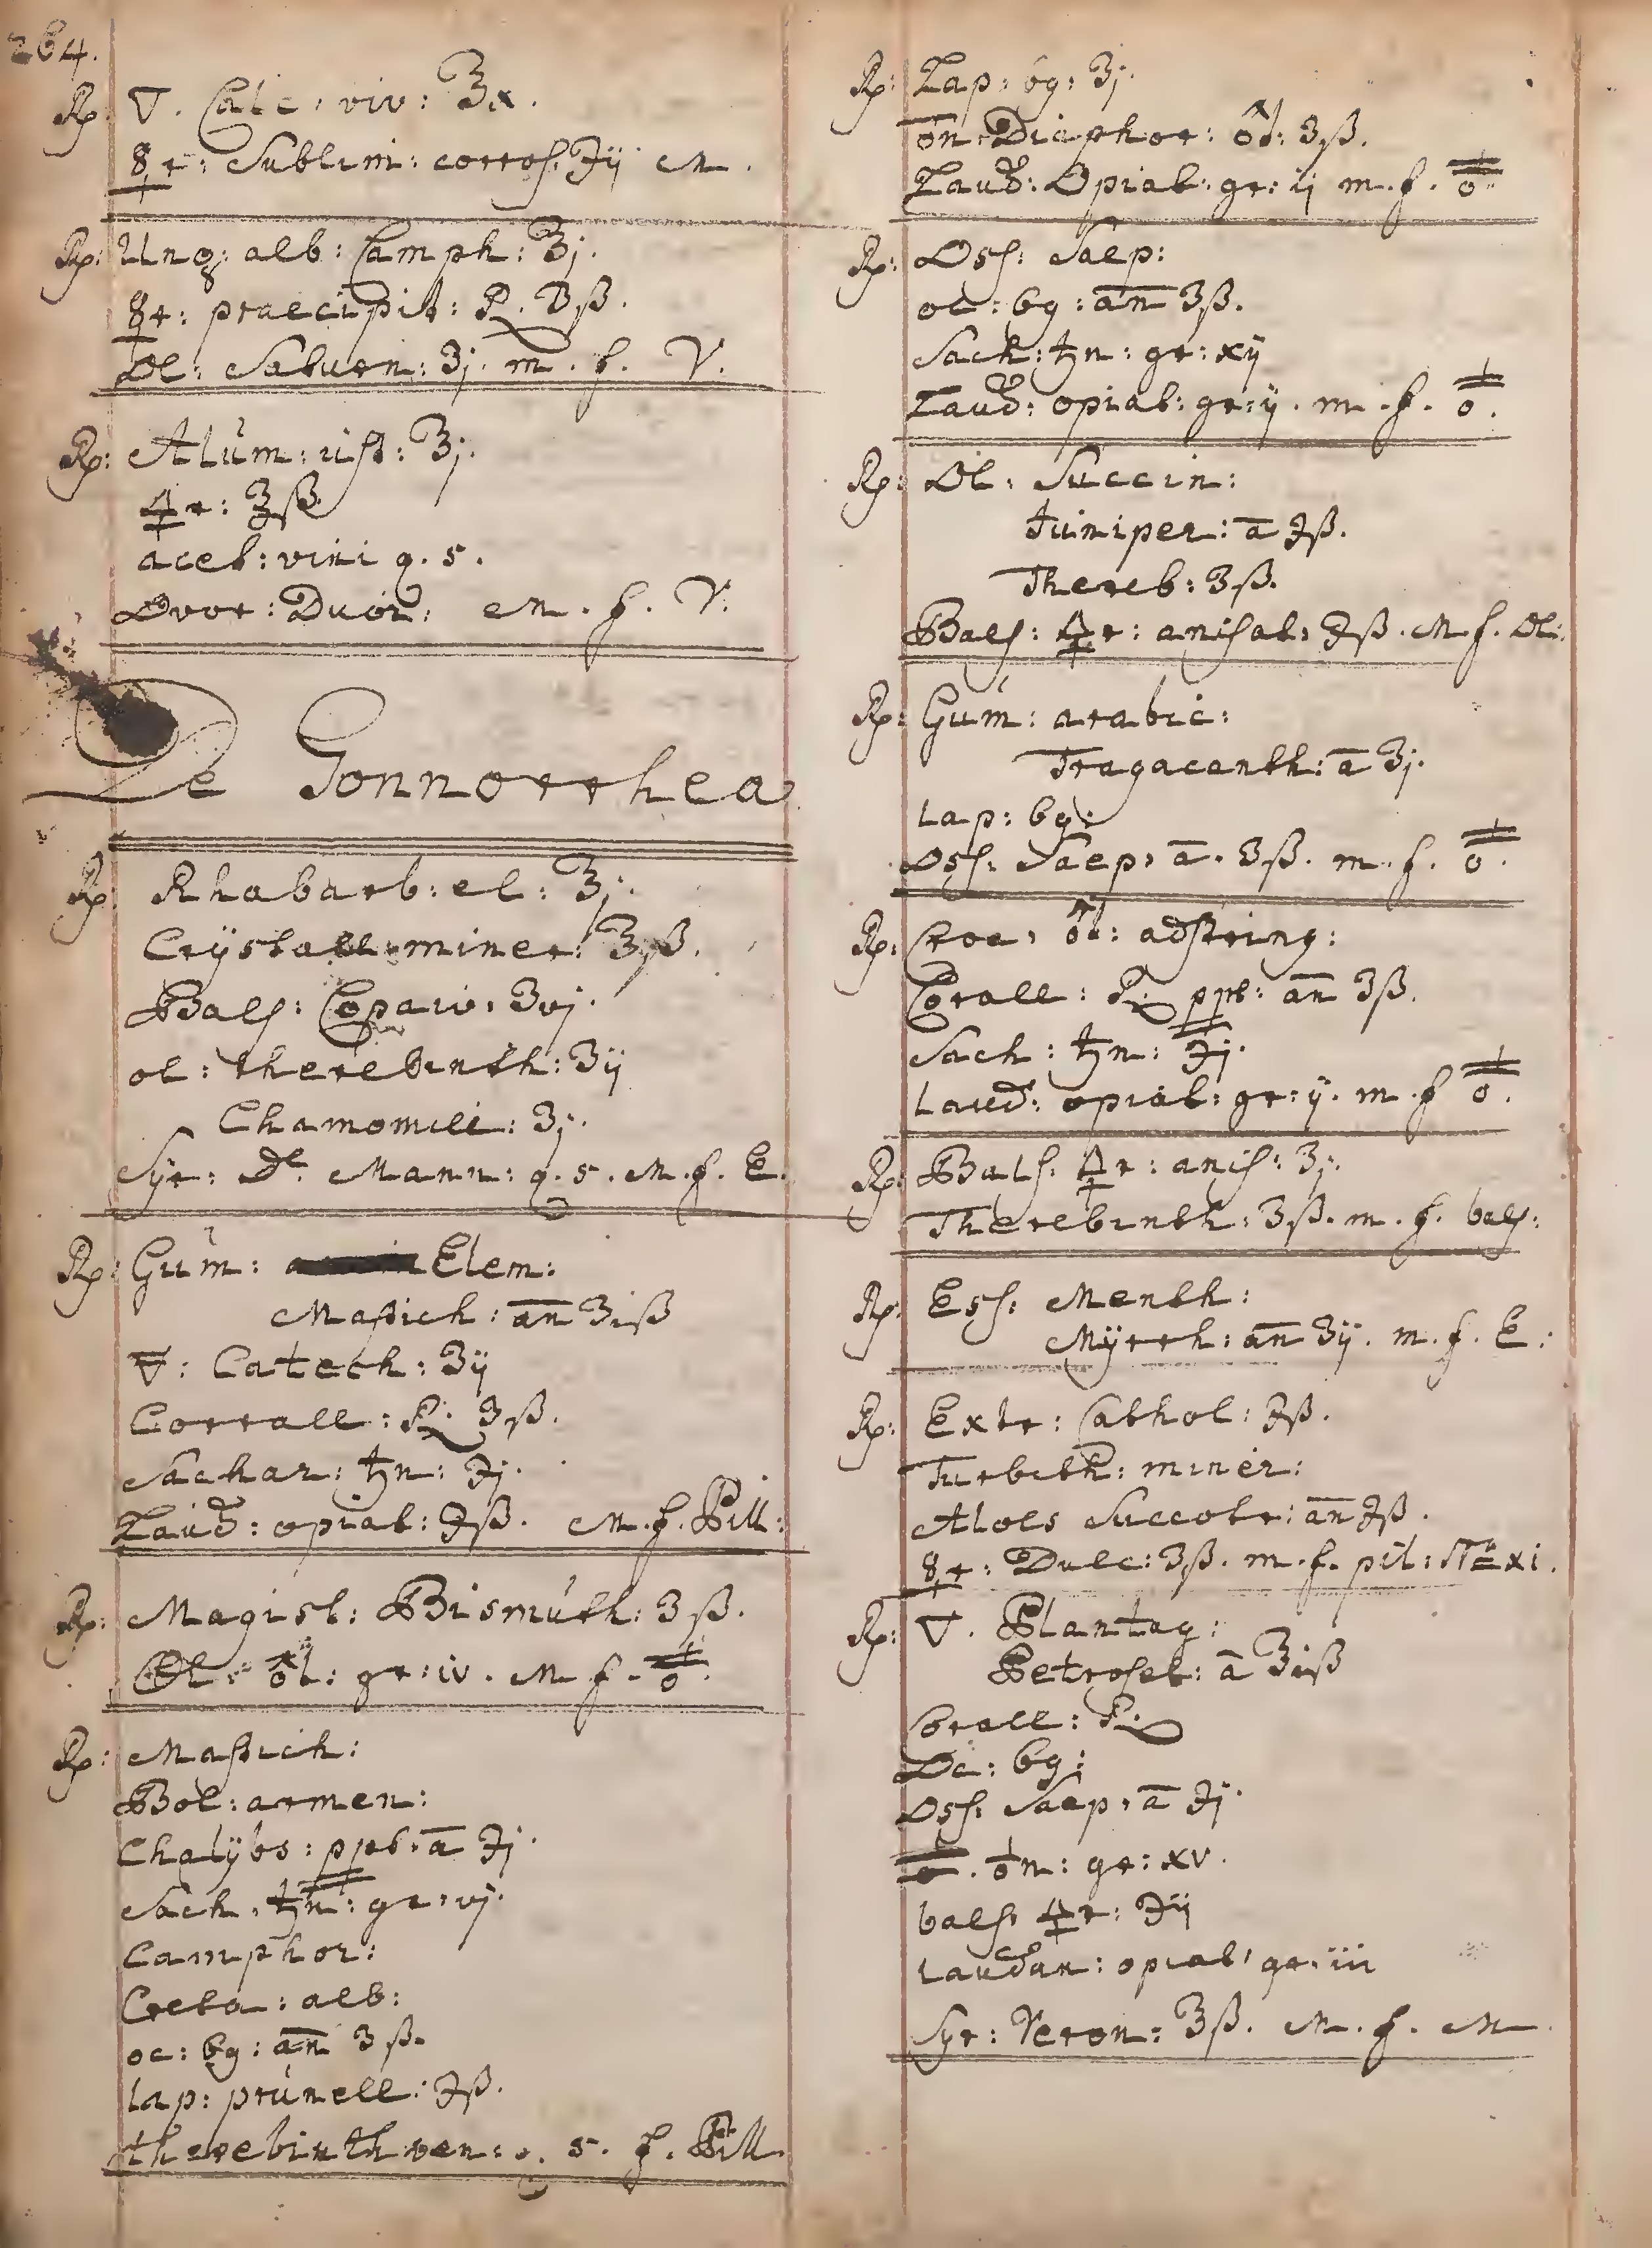 264.
Rp: ∇. Calc: viv: ℥x.
☿r: Sublim: corros: ℈ij M.
Rp: Ung: alb: Camph: ℥j.
☿r: praecipit: R. ʒß.
Ol: Saturn: ʒj. m. f. V.
Rp: Alum: ust: ℥j.
🜍r: ʒß
acet: vini q. s.
Ovor: Duor: M. f. V.
De Gonnorrhea
Rp: Rhabarb: el: ℥j.
Crÿstall: miner: ℥ß.
Bals: Copaiv: ʒvj.
ol: therebinth: ʒij
Chamomill: ʒj.
Syr: de Mann: q. s. M. f. E.
Rp: Gum: Elem:
Mastich: an ʒiß
∇: Catech: ʒij
Corrall: R: ʒß.
Sachar: ♄n: ℈j.
Laud: opiat: ℈ß. M. f. Pill:
Rp: Magist: Bismuth: ʒß.
gr: iv. M f.
Rp: Mastich:
Bol: armen:
Chalÿbs: ppt: a ℈j.
Sach: ♄n: gr: vj.
Camphor:
Creta: alb:
oc: 69: an ʒß.
Lap: prunell: ℈ß.
therebinth ven: q. s. f. Pill.
Rp: Lap: 69: ʒj.
♁n Diaphor: ♂t: ʒß.
Laud: Opiat: gr: ij m. f. ♁
Rp: Oss: Saep:
oc: 69: an ʒß.
Sach: ♄n: gr: xij
Laud: opiat: gr: ij. m. f. ♁.
Rp: Ol: Succin:
Juniper: a ℈ß.
Thereb: ʒß.
Bals: 🜍r: anisat: ℈ß. M. f. Ol:
Rp: Gum: arabic:
Tragacanth: a ʒj.
Lap: 69:
Oss: Saep: a. ʒß. m. f. ♁.
Rp: Croc: ♂t: adstring:
Corall: R: ppt: an ʒß.
Sach: ♄n: ℈j.
Laud: opiat: gr: ij. m. f ♁.
Rp: Bals: 🜍r: anis: ʒj.
Therebinth: ʒß. m. f. bals:
Rp: Ess: Menth:
Mÿrrh: an ʒij. m. f. E:
Rp: Extr: Cathol: ℈ß.
Turbith: miner:
Aloes Succotr: an ℈ß.
☿r: Dulc: ʒß. m. f. pil: No xi.
Rp: ∇. Plantag:
Petrosel: a ℥iß
Corall: R:
Oc: 69:
Oss: Saep: a ℈j.
♁n: gr: xv.
bals: 🜍r: ℈ij
Laudan: opiat: gr: iii
Syr: Veron: ℥ß. M. f. M